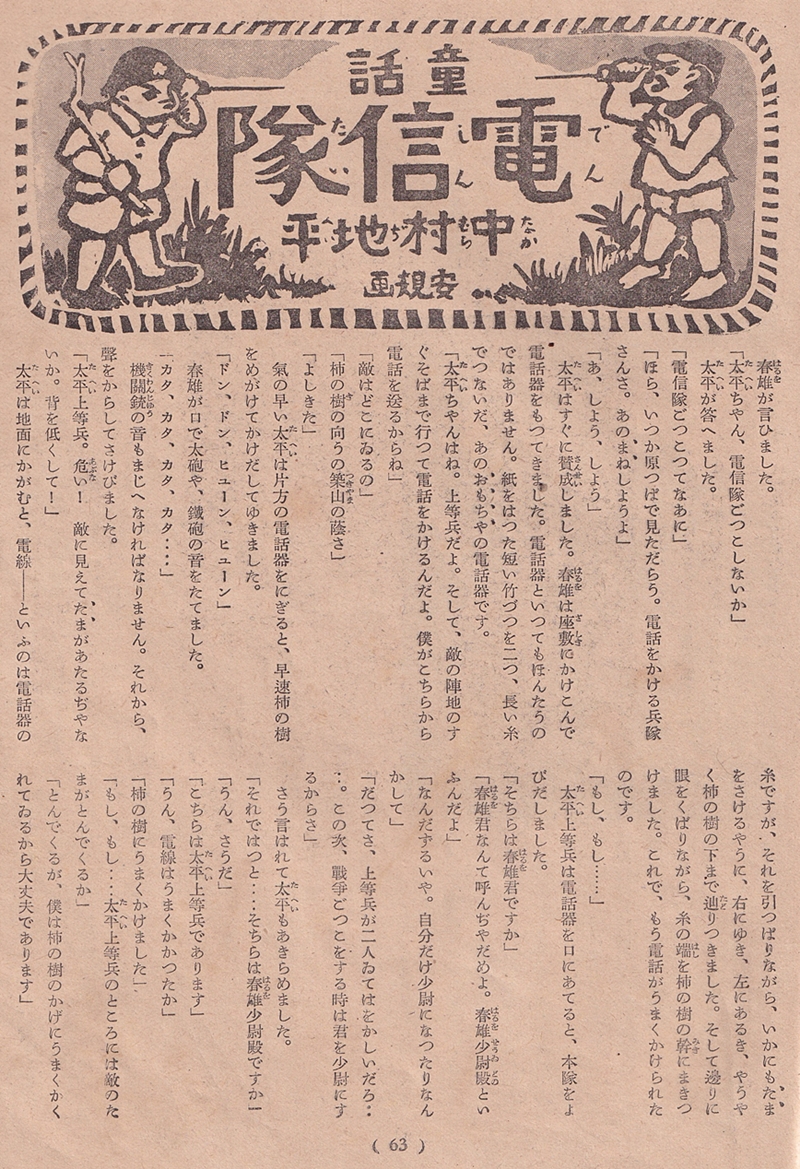 童話
電信隊
でんしんたい
中村地平
なかむらちへい
安規画
春雄が言ひました。
「太平ちやん、電信隊ごつこしないか」
太平が答へました。
「電信隊ごつこつてなあに」
「ほら、いつか原つぱで見ただらう。電話をかける兵隊
さんさ。あのまねしようよ」
「あ、しよう、しよう」
太平はすぐに賛成しました。春雄は座敷にかけこんで
電話器をもつてきました。電話器といつてもほんたうの
ではありません。紙をはつた短い竹づつを二つ、長い糸
でつないだ、あのおもちやの電話器です。
「太平ちやんはね。上等兵だよ。そして、敵の陣地のす
ぐそばまで行つて電話をかけるんだよ。僕がこちらから
電話を送るからね」
「敵はどこにゐるの」
「柿の樹の向うの築山の蔭さ」
「よしきた」
氣の早い太平は片方の電話器をにぎると、早速柿の樹
をめがけてかけだしてゆきました。
「ドン、ドン、ヒューン、ヒューン」
春雄が口で太砲や、鐵砲の音をたてました。
「カタ、カタ、カタ、カタ‥‥」
機關銃の音もまじへなければなりません。それから、
聲をからしてさけびました。
「太平上等兵。危い！　敵に見えてたまがあたるぢやな
いか。背を低くして！」
太平は地面にかがむと、電線——といふのは電話器の
糸ですが、それを引つぱりながら、いかにもたま
をさけるやうに、右にゆき、左にあるき、やうや
く柿の樹の下まで辿りつきました。そして邊りに
眼をくばりながら、糸の端を柿の樹の幹にまきつ
けました。これで、もう電話がうまくかけられた
のです。
「もし、もし……」
太平上等兵は電話器を口にあてると、本隊をよ
びだしました。
「そちらは春雄君ですか」
「春雄君なんて呼んぢやだめよ。春雄少尉殿とい
ふんだよ」
「なんだずるいや。自分だけ少尉になつたりなん
かして」
「だつてさ、上等兵が二人ゐてはをかしいだろ‥
‥。この次、戰爭ごつこをする時は君を少尉にす
るからさ」
さう言はれて太平もあきらめました。
「それではつと‥‥そちらは春雄少尉殿ですか―
「うん、さうだ」
「こちらは太平上等兵であります」
「うん、電線はうまくかかつたか」
「柿の樹にうまくかけました」
「もし、もし‥‥太平上等兵のところには敵のた
まがとんでくるか」
「とんでくるが、僕は柿の樹のかげにうまくかく
れてゐるから大丈夫であります」
( 63 )